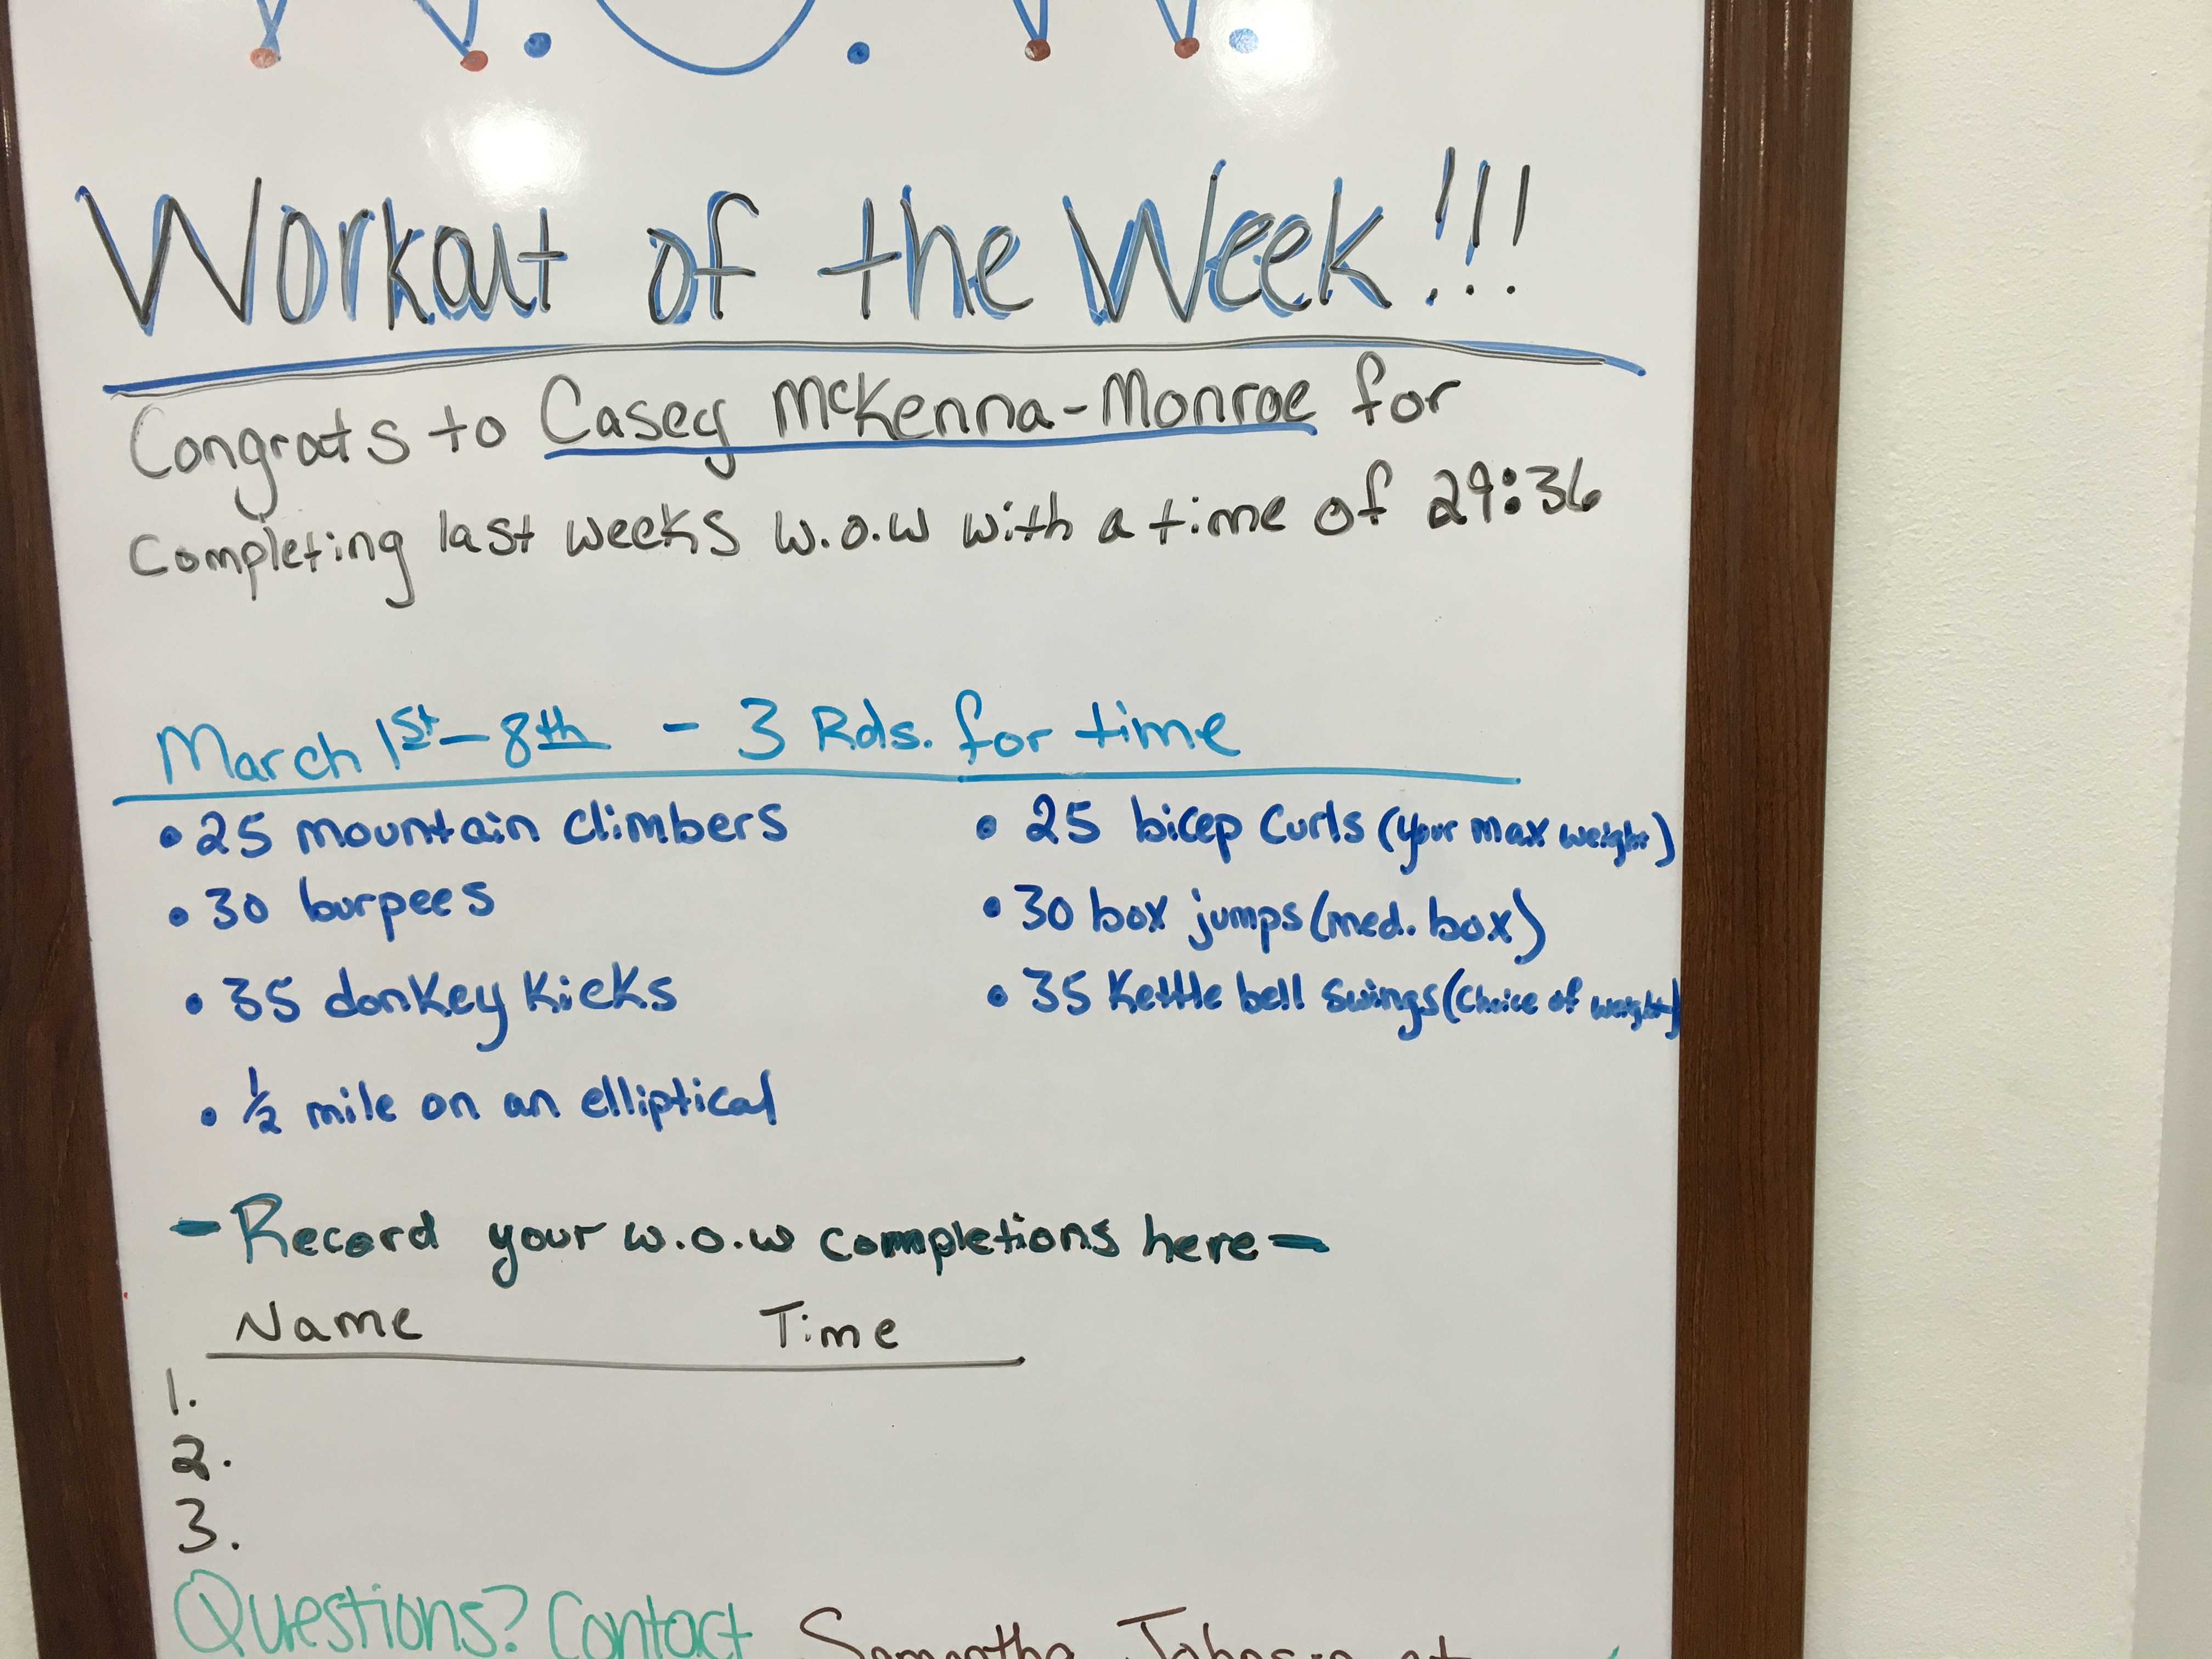 W.O.W.
Workout of the Week!!!
Congrats to Casey McKenna-Monroe for
Completing last weeks W.O.W with a time of 29:36
March 1st-8th - 3 Rds. for time
• 25 mountain climbers
• 30 burpees
• 35 donkey kicks
• 1/2 mile on an elliptical
• 25 bicep curls (your max weight)
• 30 box jumps (med. box)
• 35 Kettle bell swings (choice of weight)
- Record your w.o.w completions here -
Name Time
1.
2.
3.
Questions? Contact Samantha Johnson at